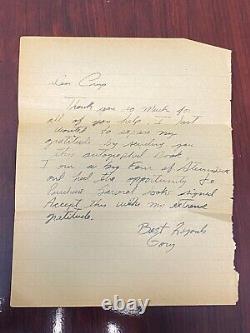 Thank you so Much for
all of you help. I Just
wanted to express my
gratitude by sending you
this autographed Book
I am a big fan of Steinbeck
and had the opportunity to
Purchase Several books signed
Accept this with my extreme
gratitude.
Best Regards
Gary